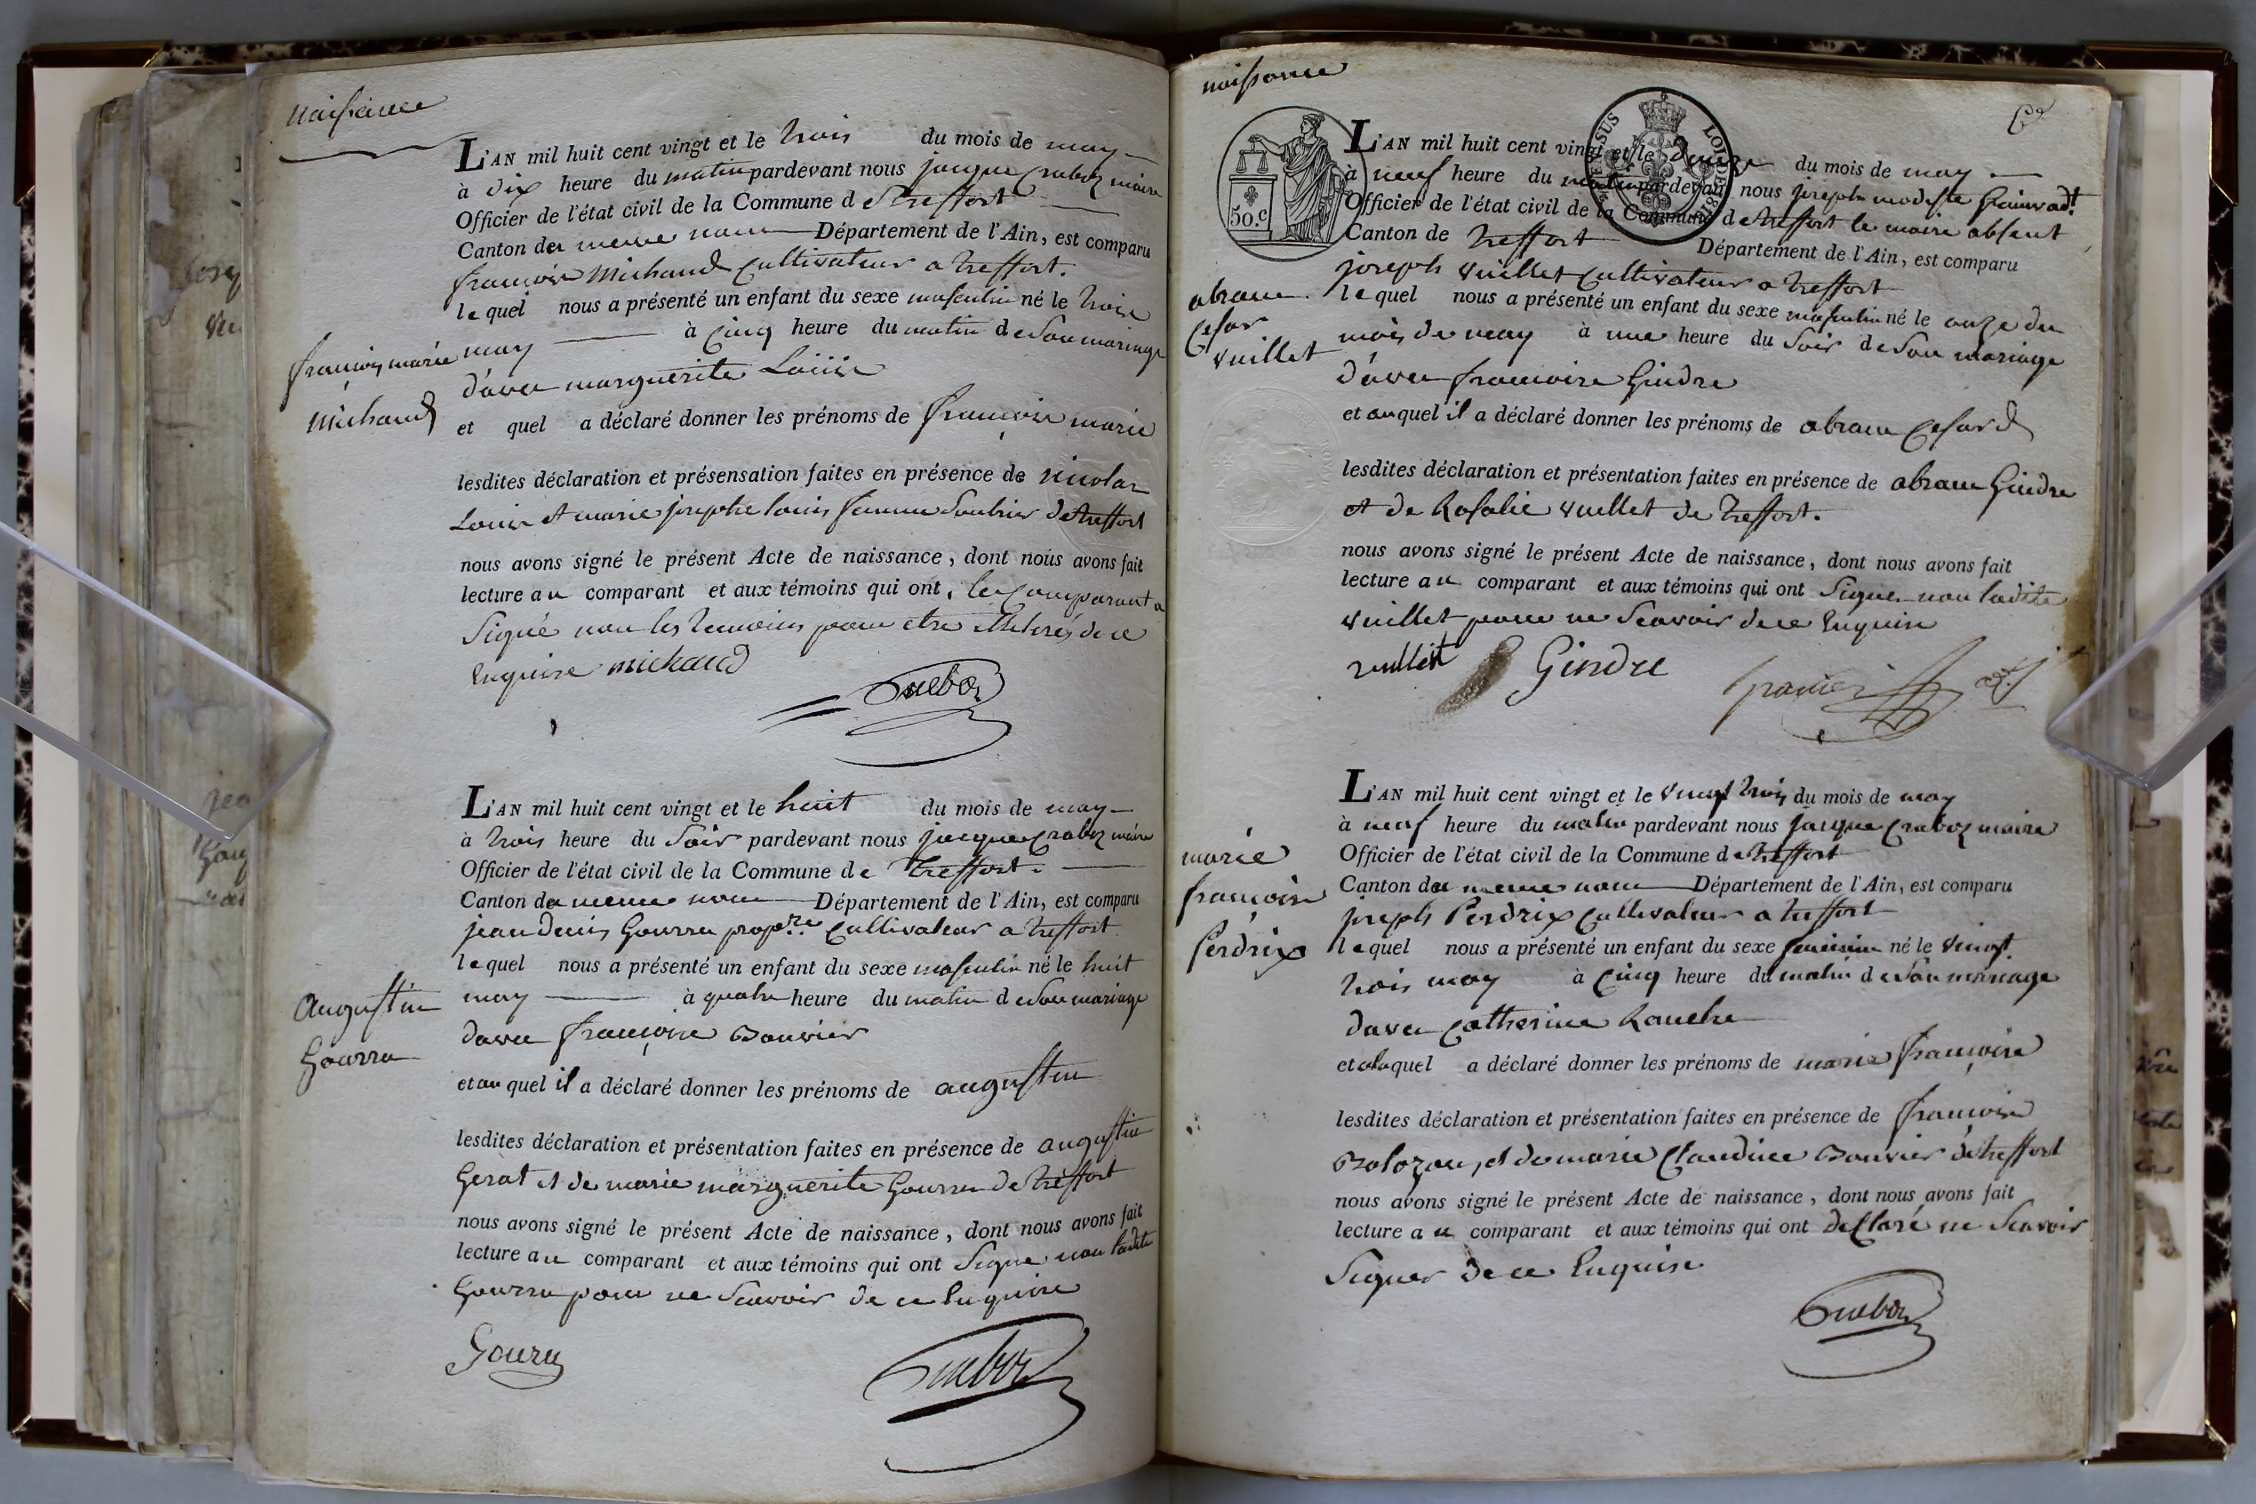 naissance
L'AN mil huit cent vingt et le trois du mois de may
à dix heure du matin pardevant nous jacque Craboz maire
Officier de l'état civil de la Commune de treffort
Canton du meme nom Département de l'Ain, est comparu
françois Michaud Cultivateur a treffort.
lequel nous a présenté un enfant du sexe masculin né le trois
may à Cinq heure du matin de son mariage
françois marie
michaud
d'avec marguerite Louis
et quel a déclaré donner les prénoms de françois marie
lesdites déclaration et présensation faites en présence de nicolas
Louis et marie josephe louis femme Soubrier de treffort
nous avons signé le présent Acte de naissance, dont nous avons fait
lecture au comparant et aux témoins qui ont, le Comparant a
Signé non les temoins pour etre illiterés de ce
Enquise michaud
L'AN mil huit cent vingt et le huit du mois de may
à trois heure du Soir pardevant nous jacque Craboz maire
Officier de l'état civil de la Commune de treffort.
Canton du meme nom Département de l'Ain, est comparu
jean denis Gourru prop.re Cultivateur a treffort
lequel nous a présenté un enfant du sexe masculin né le huit
may à quatre heure du matin de son mariage
Augustin
Gourru
davec françoise Bouvier
et au quel il a déclaré donner les prénoms de augustin
lesdites déclaration et présentation faites en présence de augustin
Gerat et de marie marguerite Gourru de treffort
nous avons signé le présent Acte de naissance, dont nous avons fait
lecture au comparant et aux témoins qui ont Signe non ladite
Gourru pour ne Scavoir de ce Enquise
Gouru
naissance
TIMBRE EN SUS
LOI DE 1816
50.c
L'AN mil huit cent vingt et le douze du mois de may
à neuf heure du matin pardevant nous joseph modeste adt.
Officier de l'état civil de la Commune de treffort le maire absent
Canton de treffort Département de l'Ain, est comparu
joseph Vuillet Cultivateur a treffort
abram
Cesar
Vuillet
lequel nous a présenté un enfant du sexe masculin né le onze du
mois de may à une heure du Soir de son mariage
d'avec françoise Gindre
et auquel il a déclaré donner les prénoms de abram Cesard
lesdites déclaration et présentation faites en présence de abram Gindre
et de Rosalie Vuillet de treffort.
nous avons signé le présent Acte de naissance, dont nous avons fait
lecture au comparant et aux témoins qui ont Signe non ladite
Vuillet pour ne Scavoir de ce Enquise
Gindre
L'AN mil huit cent vingt et le vingt trois du mois de may
à neuf heure du matin pardevant nous jacque Craboz maire
Officier de l'état civil de la Commune de treffort
Canton du meme nom Département de l'Ain, est comparu
joseph Perdrix Cultivateur a treffort
marie
françoise
Perdrix
lequel nous a présenté un enfant du sexe feminin né le vingt
trois may à Cinq heure du matin de son mariage
davec Catherine Rouche
et alaquel a déclaré donner les prénoms de marie françoise
lesdites déclaration et présentation faites en présence de françoise
Bolozon, et de marie Claudine Bouvier de treffort
nous avons signé le présent Acte de naissance, dont nous avons fait
lecture au comparant et aux témoins qui ont declaré ne Scavoir
Signer de ce Enquise